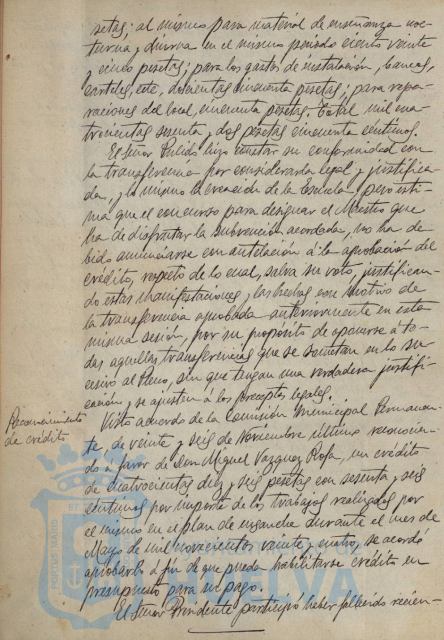 setas; al mismo para material de enseñanza noc-
turna y diurna en el mismo periodo ciento veinte
y cinco pesetas; para los gastos de instalación, bancas,
carteles, etc, doscientas cincuenta pesetas; para repa-
raciones del local, cincuenta pesetas. Total mil cua-
trocientas sesenta y dos pesetas cincuenta centimos.
El Señor Pulido hizo constar su conformidad con
la transferencia por considerarla legal y justifica-
da, y lo mismo la creación de la Escuela, pero esti-
ma que el concurso para designar el Maestro que
ha de disfrutar la subvención acordada, no ha de-
bido anunciarse con antelación á la aprobación del
crédito, respecto de lo cual, salva su voto, justifican-
do estas manifestaciones y las hechas con motivo de
la transferencia aprobada anteriormente en esta
misma sesión, por su propósito de oponerse á to-
das aquellas transferencias que se sometan en lo su-
cesivo al Pleno, sin que tengan una verdadera justifi-
cación y se ajusten á los preceptos legales.
Reconocimiento
de crédito
Visto acuerdo de la Comisión Municipal Permanen-
te, de veinte y seis de Noviembre último reconocien-
do á favor de Don Miguel Vazquez Rosa, un crédito
de cuatrocientas diez y seis pesetas con sesenta y seis
centimos por importe de los trabajos realizados por
el mismo en el plan de ensanche durante el mes de
Mayo de mil novecientos veinte y cuatro, se acordó
aprobarlo á fin de que pueda habilitarse crédito en
presupuesto para su pago.
El Señor Presidente participó haber fallecido recien-
PORTUS MARIS
HUELVA